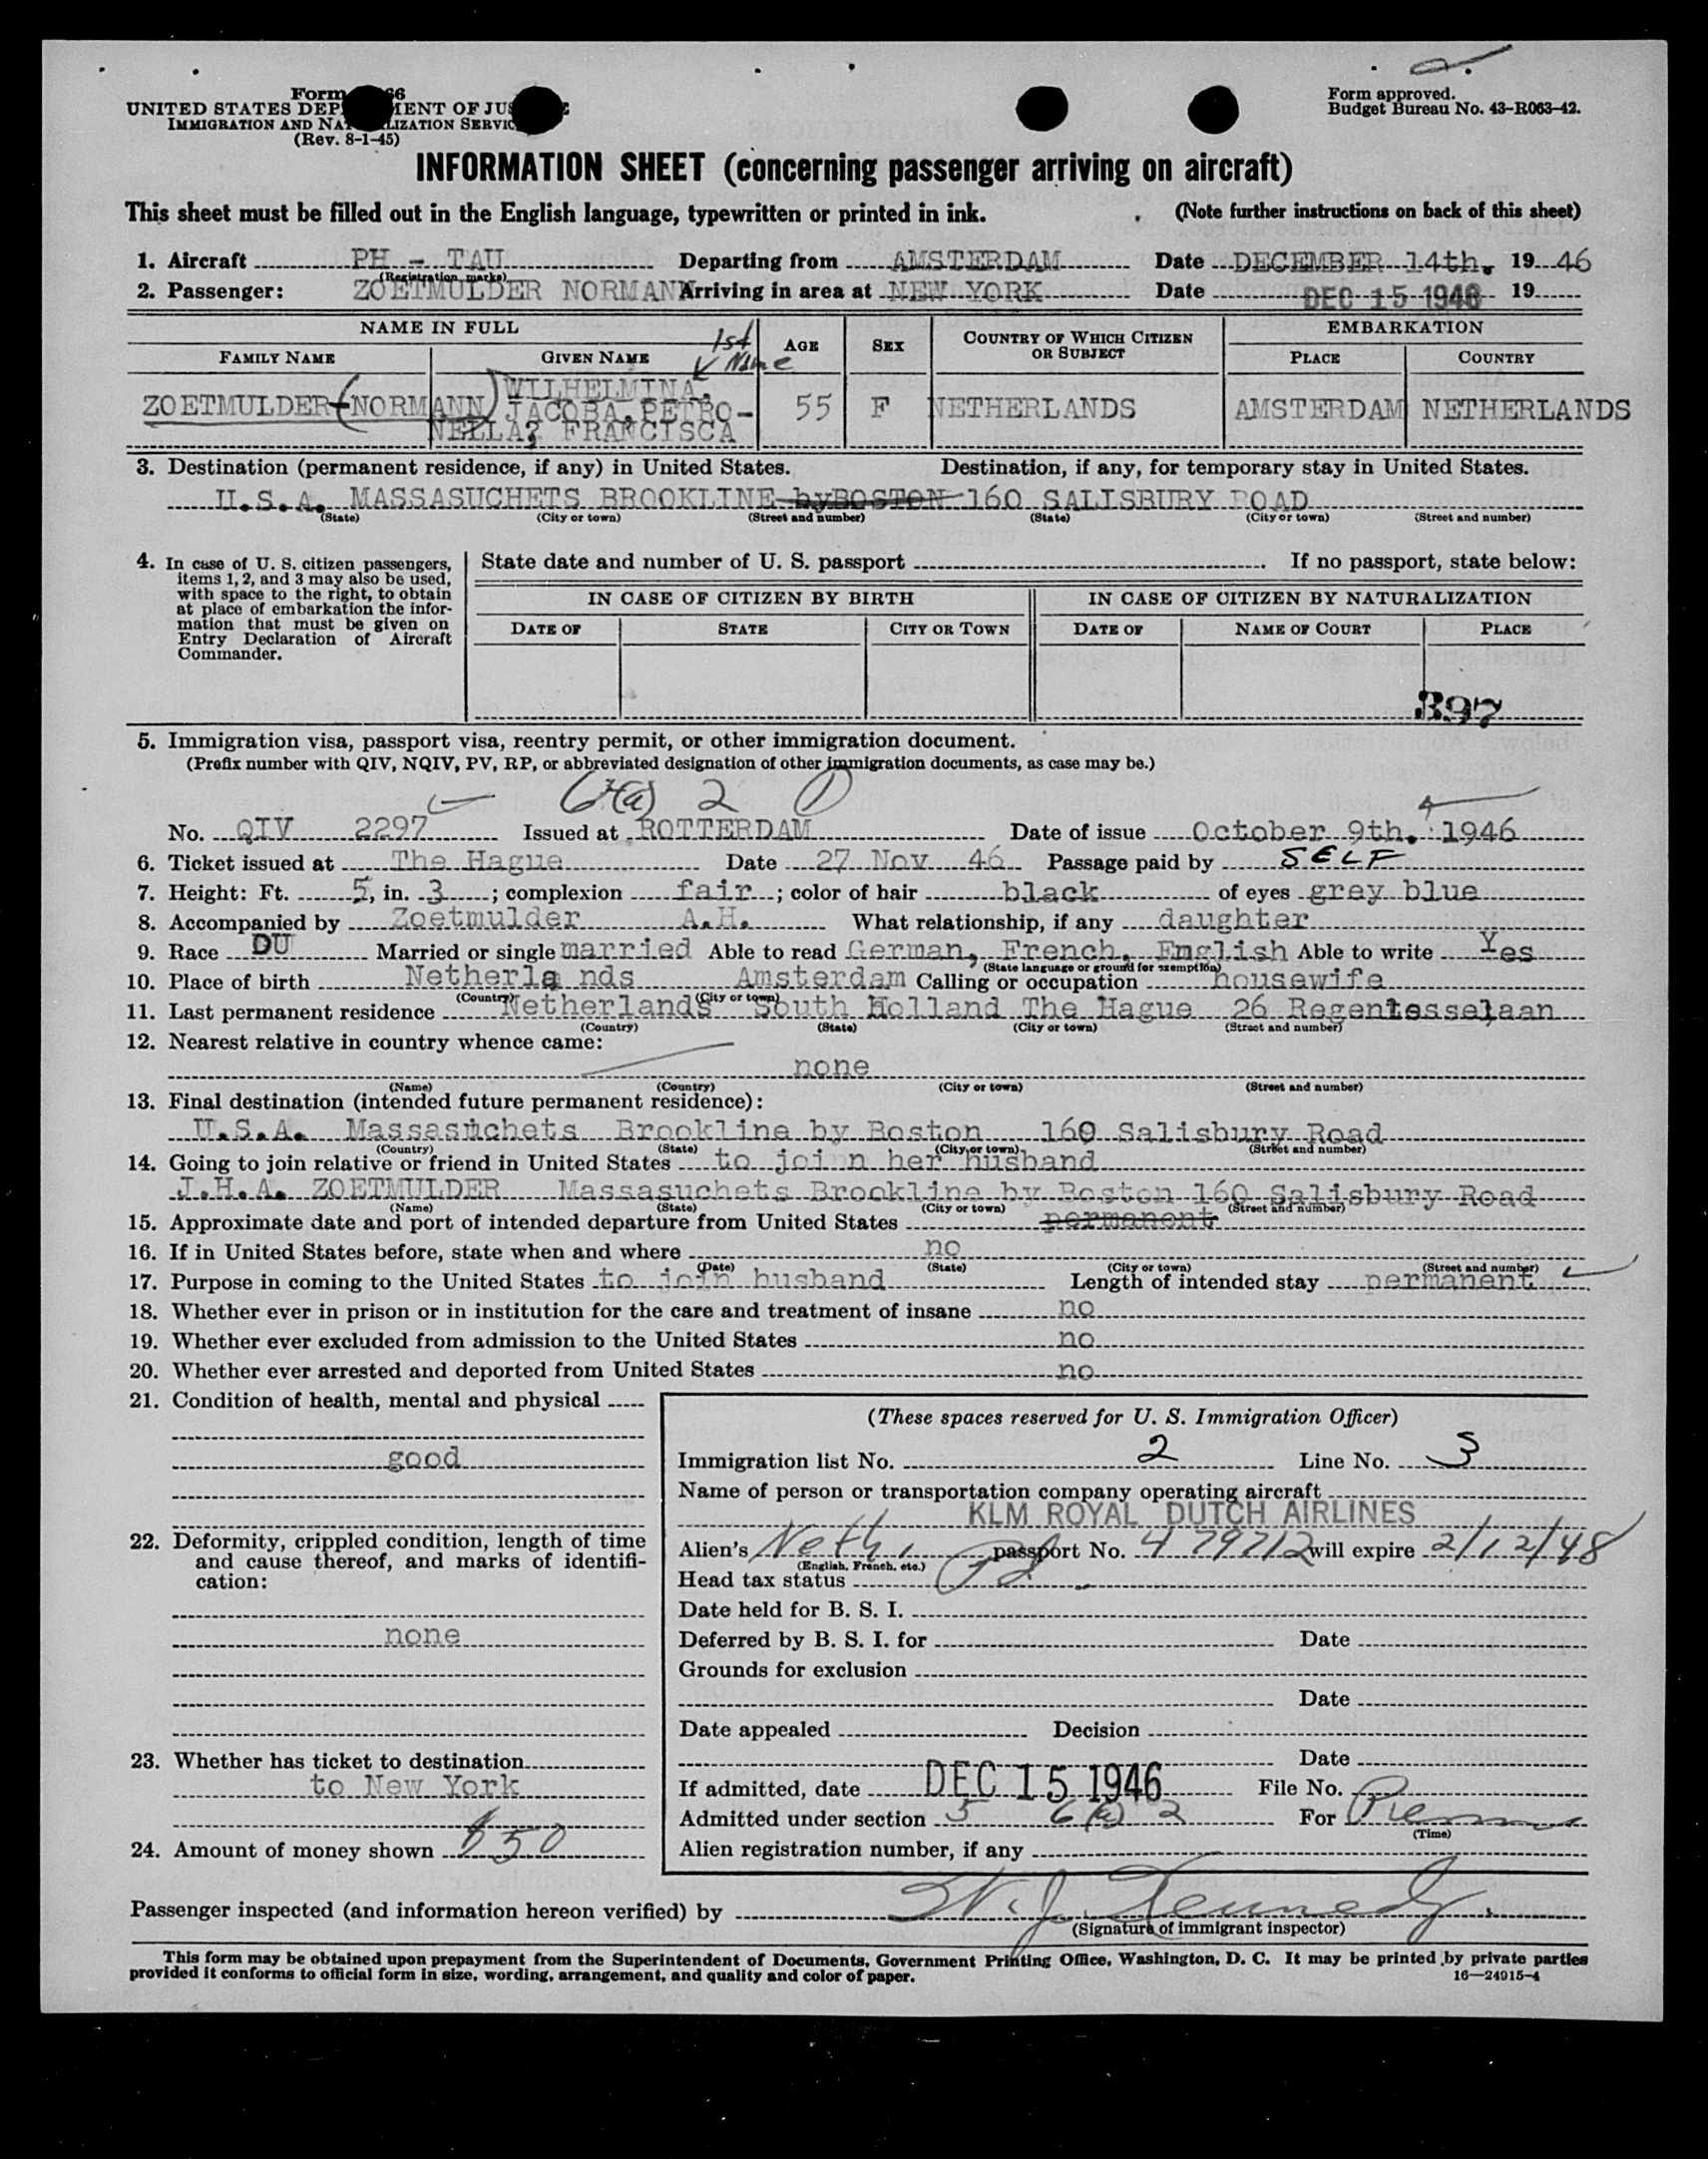 Form 66
UNITED STATES DEP MENT OF JUS
IMMIGRATION AND NA LIZATION SERVIC
(Rev. 8-1-45)
Form approved.
Budget Bureau No. 43-R063-42.
INFORMATION SHEET (concerning passenger arriving on aircraft)
This sheet must be filled out in the English language, typewritten or printed in ink.
(Note further instructions on back of this sheet)
1. Aircraft PH - TAU Departing from AMSTERDAM Date DECEMBER 14th. 19 46
(Registration marks)
2. Passenger: ZOETMULDER NORMANN Arriving in area at NEW YORK Date DEC 15 1946 19
NAME IN FULL 1st Name AGE SEX COUNTRY OF WHICH CITIZEN OR SUBJECT EMBARKATION
FAMILY NAME GIVEN NAME PLACE COUNTRY
ZOETMULDER (NORMANN) WILHELMINA, JACOBA, PETRO- 55 F NETHERLANDS AMSTERDAM NETHERLANDS
NELLA, FRANCISCA
3. Destination (permanent residence, if any) in United States. Destination, if any, for temporary stay in United States.
U.S.A. MASSASUCHETS BROOKLINE by BOSTON 160 SALISBURY ROAD
(State) (City or town) (Street and number) (State) (City or town) (Street and number)
4. In case of U. S. citizen passengers, items 1, 2, and 3 may also be used, with space to the right, to obtain at place of embarkation the information that must be given on Entry Declaration of Aircraft Commander.
State date and number of U. S. passport If no passport, state below:
IN CASE OF CITIZEN BY BIRTH IN CASE OF CITIZEN BY NATURALIZATION
DATE OF STATE CITY OR TOWN DATE OF NAME OF COURT PLACE
397
5. Immigration visa, passport visa, reentry permit, or other immigration document.
(Prefix number with QIV, NQIV, PV, RP, or abbreviated designation of other immigration documents, as case may be.)
6(a) 2
No. QIV 2297 Issued at ROTTERDAM Date of issue October 9th. 1946
6. Ticket issued at The Hague Date 27 Nov 46 Passage paid by SELF
7. Height: Ft. 5, in. 3; complexion fair; color of hair black of eyes grey blue
8. Accompanied by Zoetmulder A.H. What relationship, if any daughter
9. Race DU Married or single married Able to read German, French, English Able to write Yes
(State language or ground for exemption)
10. Place of birth Netherla nds Amsterdam Calling or occupation housewife
(Country) (City or town)
11. Last permanent residence Netherlands South Holland The Hague 26 Regentesselaan
(Country) (State) (City or town) (Street and number)
12. Nearest relative in country whence came:
none
(Name) (Country) (City or town) (Street and number)
13. Final destination (intended future permanent residence):
U.S.A. Massasuchets Brookline by Boston 160 Salisbury Road
(Country) (State) (City or town) (Street and number)
14. Going to join relative or friend in United States to joi n her husband
J.H.A. ZOETMULDER Massasuchets Brookline by Boston 160 Salisbury Road
(Name) (State) (City or town) (Street and number)
15. Approximate date and port of intended departure from United States permanent
16. If in United States before, state when and where no
(Date) (State) (City or town) (Street and number)
17. Purpose in coming to the United States to join husband Length of intended stay permanent
18. Whether ever in prison or in institution for the care and treatment of insane no
19. Whether ever excluded from admission to the United States no
20. Whether ever arrested and deported from United States no
21. Condition of health, mental and physical
good
22. Deformity, crippled condition, length of time
and cause thereof, and marks of identifi-
cation:
none
23. Whether has ticket to destination
to New York
24. Amount of money shown $50
(These spaces reserved for U. S. Immigration Officer)
Immigration list No. 2 Line No. 3
Name of person or transportation company operating aircraft
KLM ROYAL DUTCH AIRLINES
Alien's Neth. passport No. 479712 will expire 2/12/48
(English, French, etc.)
Head tax status
Date held for B. S. I.
Deferred by B. S. I. for Date
Grounds for exclusion
Date
Date appealed Decision
Date
If admitted, date DEC 15 1946 File No.
Admitted under section 5 6(a) 2 For Perm
(Time)
Alien registration number, if any
Passenger inspected (and information hereon verified) by W. J. Kennedy
(Signature of immigrant inspector)
This form may be obtained upon prepayment from the Superintendent of Documents, Government Printing Office, Washington, D. C. It may be printed by private parties
provided it conforms to official form in size, wording, arrangement, and quality and color of paper.
16—24915-4